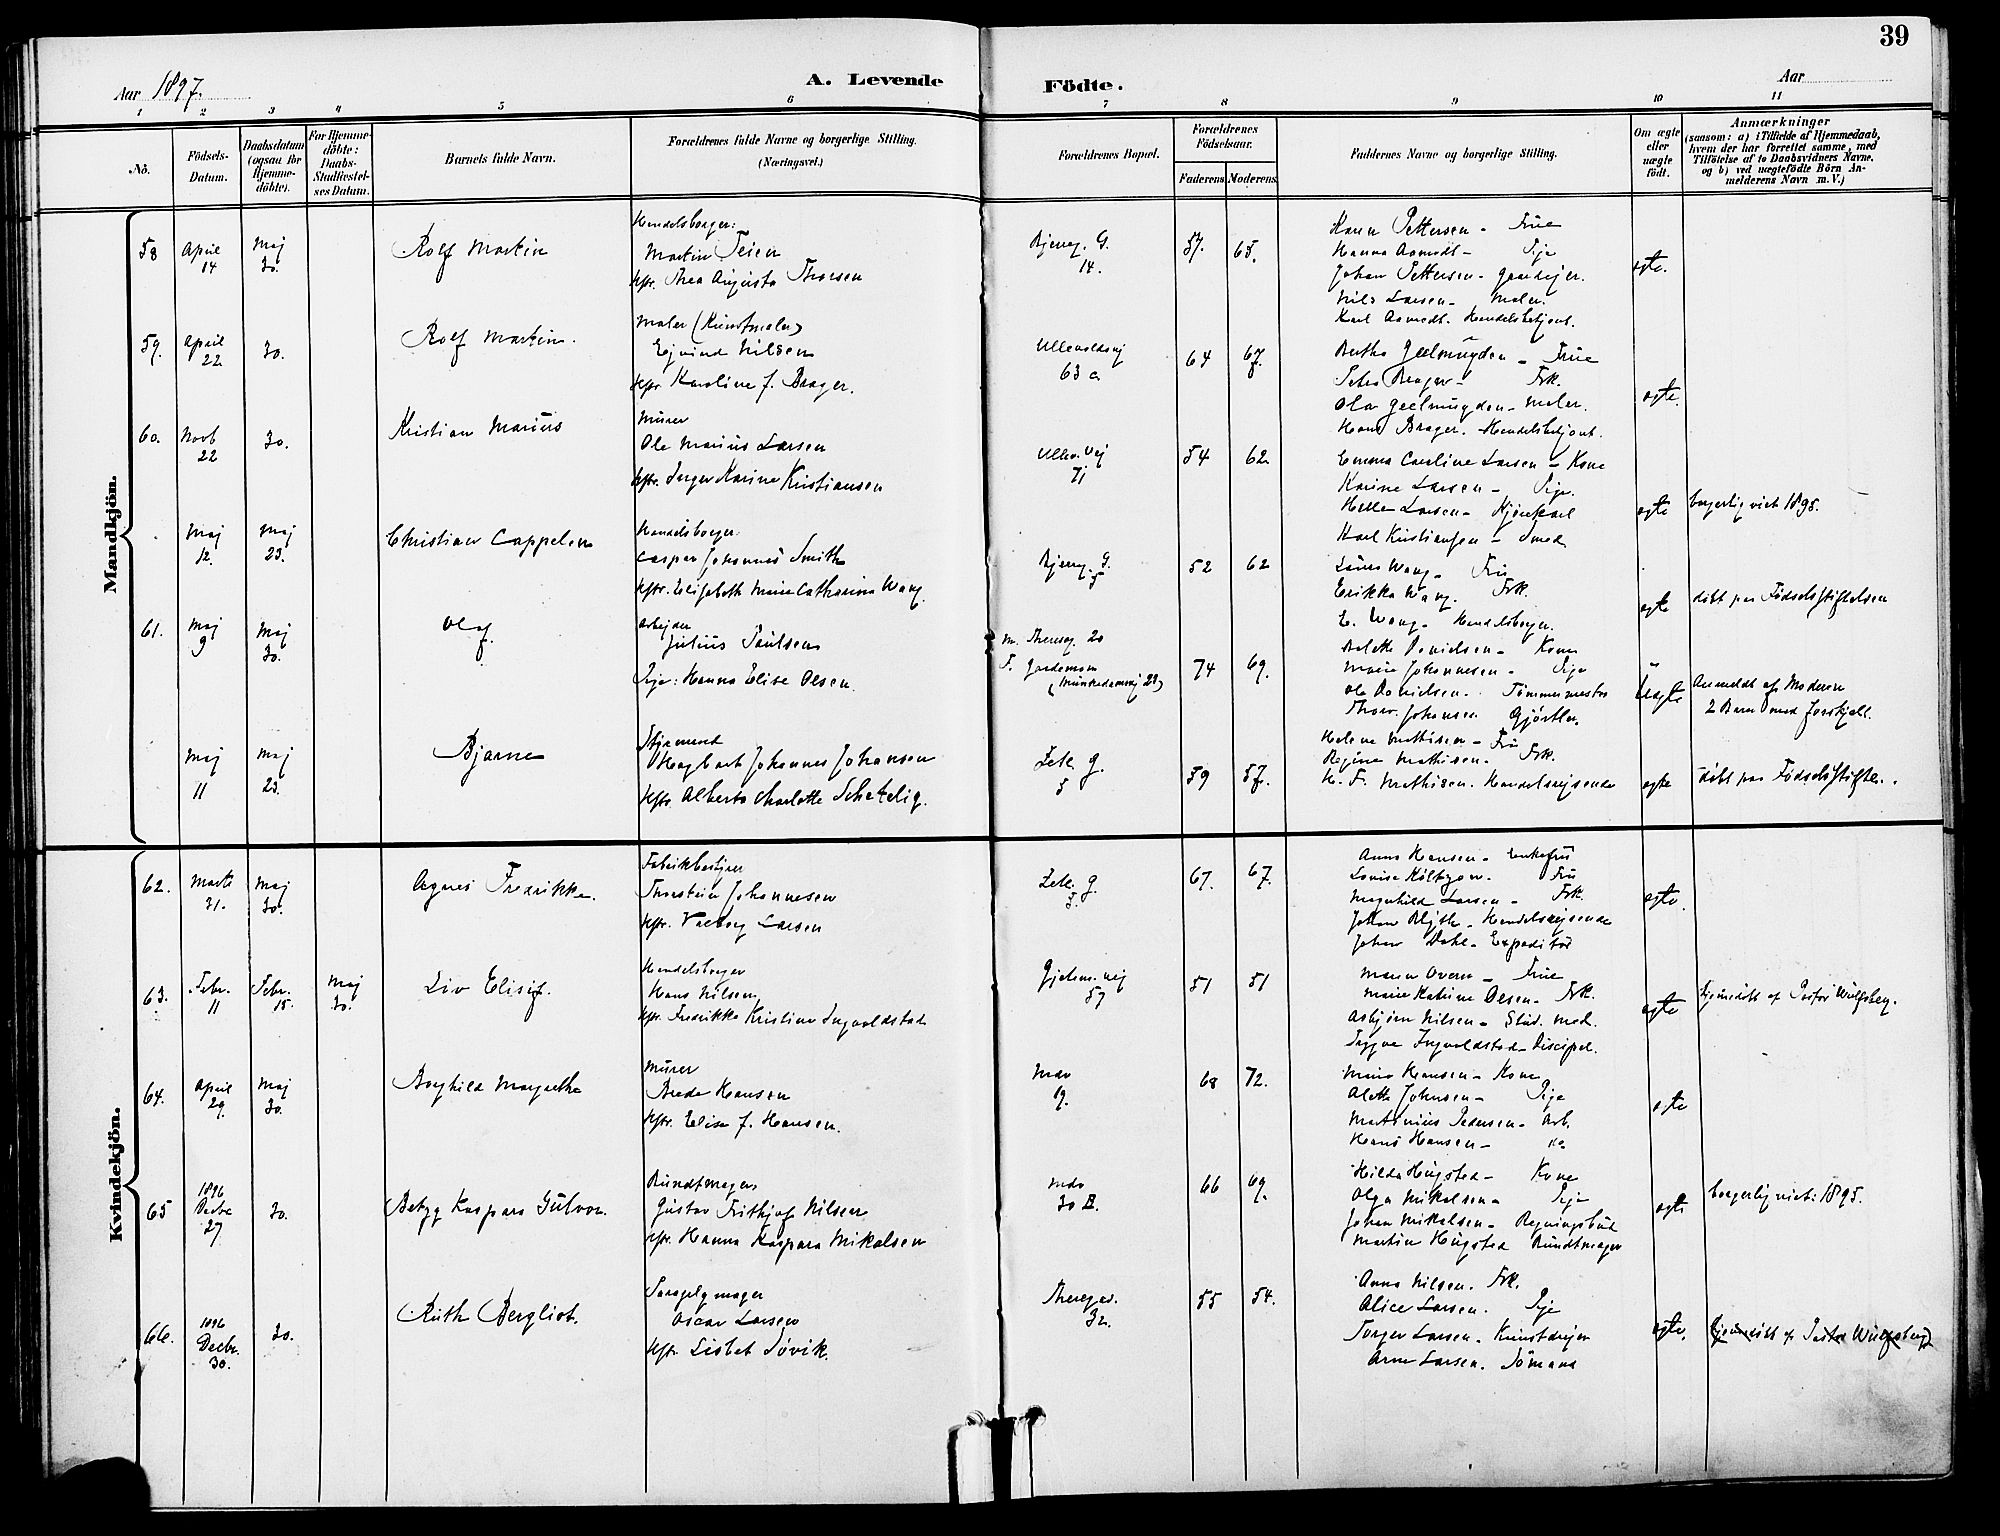 39
Aar 1897.
A. Levende
Födte.
Aar
1 2 3 4 5 6 7 8 9 10 11
No.
Födsels-
Datum.
Daabsdatum
(ogsaa for
Hjemme-
döbte).
For Hjemme-
döbte:
Daabs-
Stadfæstel-
ses Datum.
Barnets fulde Navn.
Forældrenes fulde Navne og borgerlige Stilling.
(Næringsvei.)
Forældrenes Bopæl.
Forældrenes
Födselsaar.
Faderens
Moderens
Faddernes Navne og borgerlige Stilling.
Om ægte
eller
uægte
födt.
Anmærkninger
(saasom: a) i Tilfælde af Hjemmedaab,
hvem der har forrettet samme, med
Tilföielse af to Daabsvidners Navne,
og b) ved uægtefödte Börn An-
melderens Navn m.V.)
Mandkjön.
58 April 14 Maj 30. Rolf Martin
Handelsborger:
Martin Teien
Hstr. Thea Augusta Thorsen
Bjerreg. G. 14. 57. 65.
Karen Pettersen - Frue
Hanna Aamodt - Pige
Johan Pettersen - Gaardejer.
Nils Larsen - Maler.
Karl Aamodt. Handelsbetjent.
ægte.
59. April 22 30. Rolf Martin.
Maler (Kunstmaler)
Ejvind Nilsen
Hstr Karoline f. Brager.
Ullevoldsvej 63 a 64 67.
Bertha Geelmuyden - Frue
Petra Brager - Frk.
Ola Geelmuyden - Maler.
Hans Brager. Handelsbetjent.
ægte.
60. Novb 22 30. Kristian Marius
Murer
Ole Marius Larsen
Hstr. Inger Karine Kristiansen
Ullev. Vej 71 54 62
Emma Caroline Larsen - Kone
Karine Larsen - Pige.
Helle Larsen - Kjørekarl
Karl Kristiansen - Smed
ægte borgerlig viet 1895.
Maj 12. Maj 23. Christian Cappelen
Handelsborger.
Caspar Johannes Smith
Hstr. Elisabeth Marie Catharina Wang.
Bjerreg. G. 5 52 62
Laura Wang - Fru
Erikka Wang. Frk.
E. Wang - Handelsborger.
ægte döbt paa Födselsstiftelsen
61. Maj 9 Maj 30. Olaf.
Arbejder
Julius Paulsen
Pige: Hanna Elise Olsen.
M. Thereseg. 20
F. Gardemoen
(Munkedamsvej 22) 74 69.
Danielsen - Kone
Marie Johannesen - Pige
Ole Danielsen. Tømmermester
Thorv. Johansen Gjørtler.
Uægte Anmeldt af Moderen
2 Barn med Forskjell.
Maj 11 Maj 23. Bjarne
Styrmand
Hagbart Johannes Johansen
Hstr Alberta Charlotte Schetelig.
Zet. G. 5 59 57.
Helene Mathisen - Fru
Regine Mathisen - Frk.
H. F. Mathisen. Handelsrejsende
ægte döbt paa Födselsstiftel.
Kvindekjön.
62. Marts 31. Maj 30. Agnes Fredrikke.
Fabrikbestyrer
Thorstein Johannesen
Hstr. Valborg Larsen
Zet. G. 3. 67. 67.
Anna Hansen - Enkefru
Louise Koltzow. Fru
Magnhild Larsen - Frk.
Johan Blyth - Handelsrejsende
Johan Dahl - Expeditør
ægte.
63. Febr. 11 Febr. 15. Maj 30. Liv Elisif.
Handelsborger
Hans Nilsen
Hstr. Fredrikke Kristine Ingvaldstad
Gjetem. vej 57 51 51
Maren Overn - Frue
Marie Katrine Olsen - Frk.
Asbjørn Nilsen - Stud. med.
Trygve Ingvaldstad - Discipel.
ægte hjemdöbt af Pastor Wulfsberg.
64. April 29. Maj 30. Borghild Margrethe
Murer
Brede Hansen
Hstr. Elise f. Hansen.
Mdv 19. 68 72.
Marie Hansen - Kone
Alette Johnsen - Pige
Martinius Pedersen - Arb.
Hans Hansen - do
ægte
65 1896 Decbr 27 30. Betzy Kaspara Gulvor.
Bundtmager
Gustav Frithjof Nilsen
Hstr. Hanna Kaspara Mikalsen
Mdv 30 B. 66 69.
Hilda Hugsted - Kone
Olga Mikalsen - Pige
Johan Mikalsen - Regningsbud
Martin Hugsted Bundtmager
ægte borgerlig viet: 1895.
66. 1896 Decbr. 30. 30. Ruth Bergliot.
Paraplymager
Oscar Larsen
Hstr. Lisbet Søvik.
Theresegd. 32. 55 54.
Anna Nilsen. Frk.
Alice Larsen. Pige
Torger Larsen. Kunstdrejer
Arne Larsen. Sømand
ægte. (hjemdöbt af Pastor Wulfsberg)